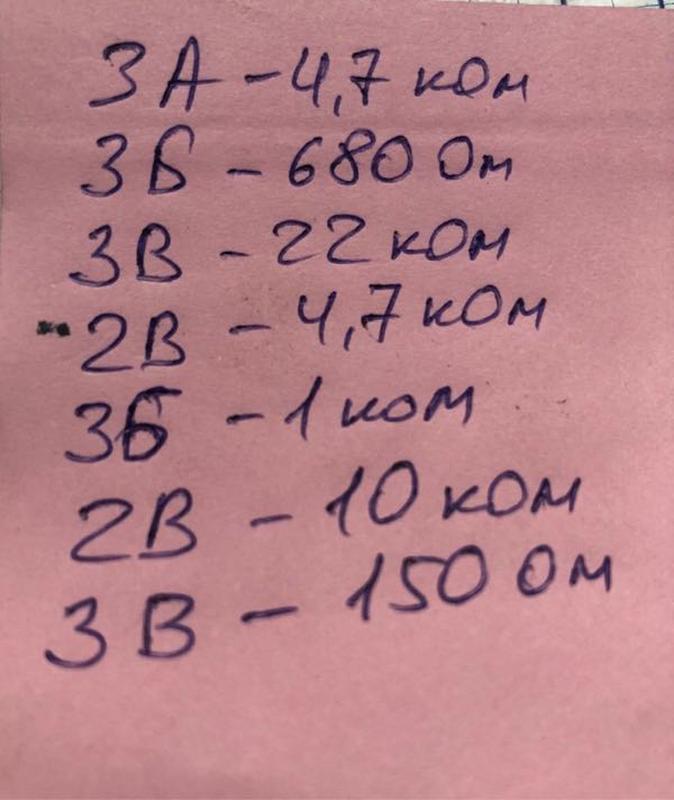 3А - 4,7 кОм
3Б - 680 Ом
3В - 22 кОм
2В - 4,7 кОм
3Б - 1 кОм
2В - 10 кОм
3В - 150 Ом